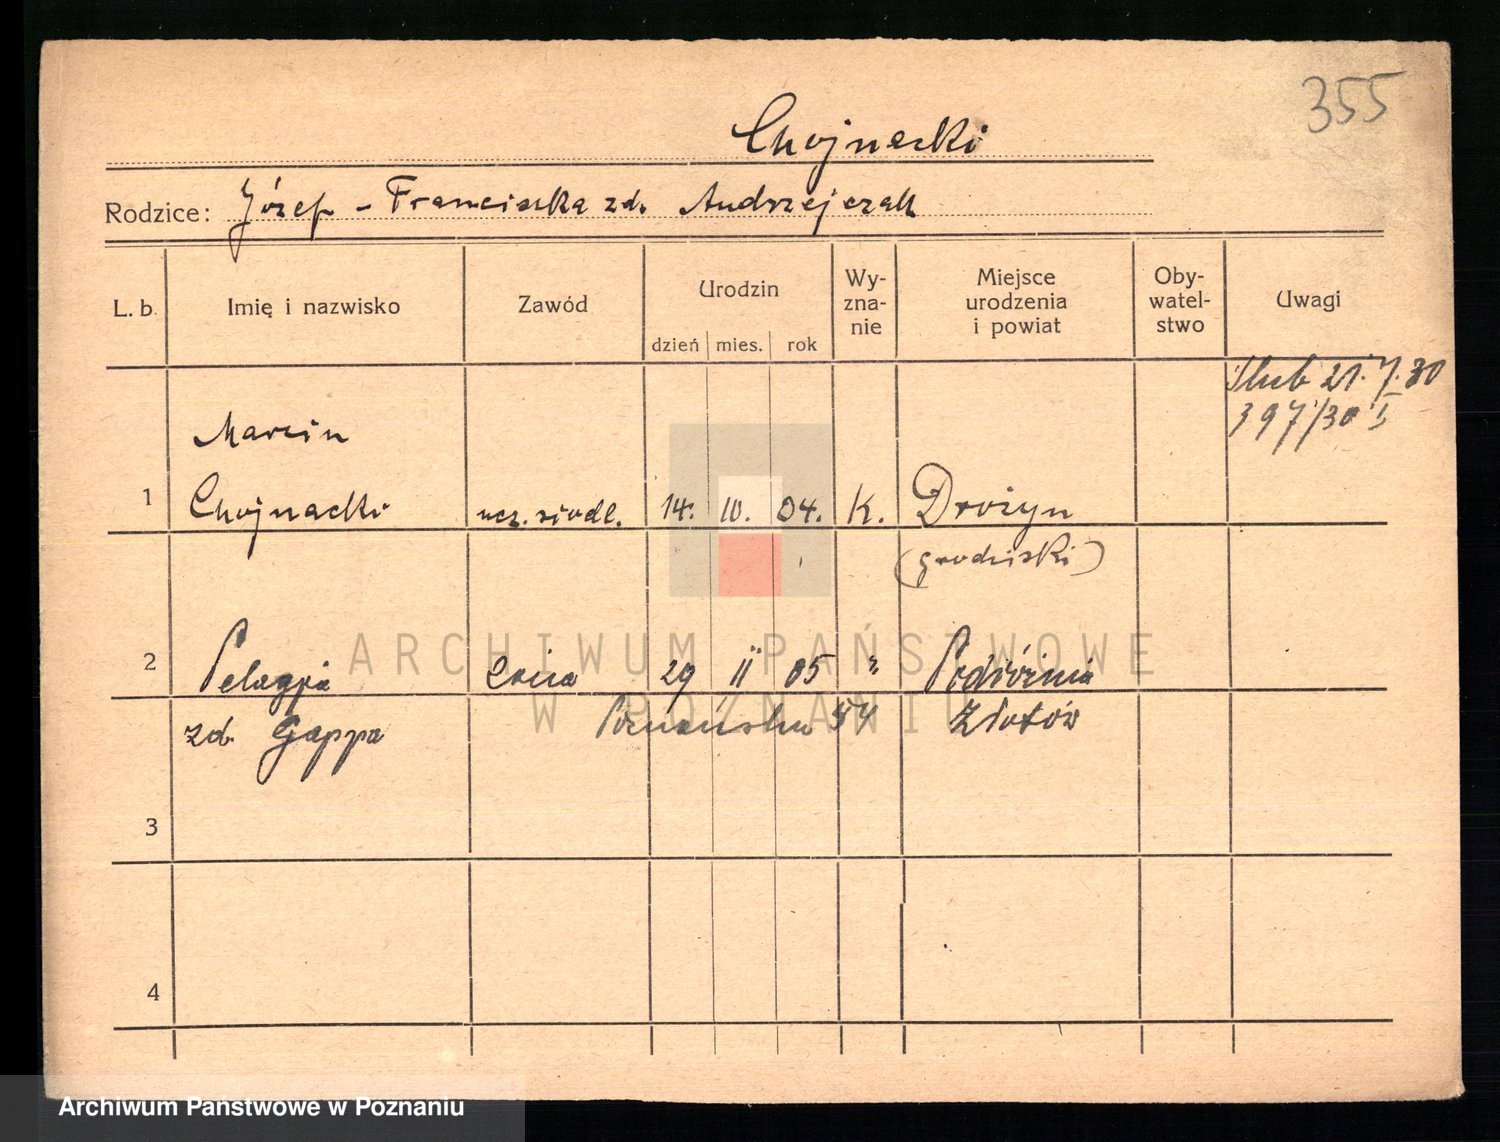 355
Chojnacki
Rodzice: Józef - Franciszka zd. Andrzejczak
L. b. Imię i nazwisko Zawód Urodzin dzień mies. rok Wy- zna- nie Miejsce urodzenia i powiat Oby- watel- stwo Uwagi
Ślub 21.7.30
397/30 I
Marcin
1 Chojnacki ucz. siodl. 14. 10. 04. K. Drożyn
(grodziski)
2 Pelagja 29 II 05 "
zd. Gappa 54 Złotów
3
4
ARCHIWUM PAŃSTWOWE
W POZNANIU
Archiwum Państwowe w Poznaniu